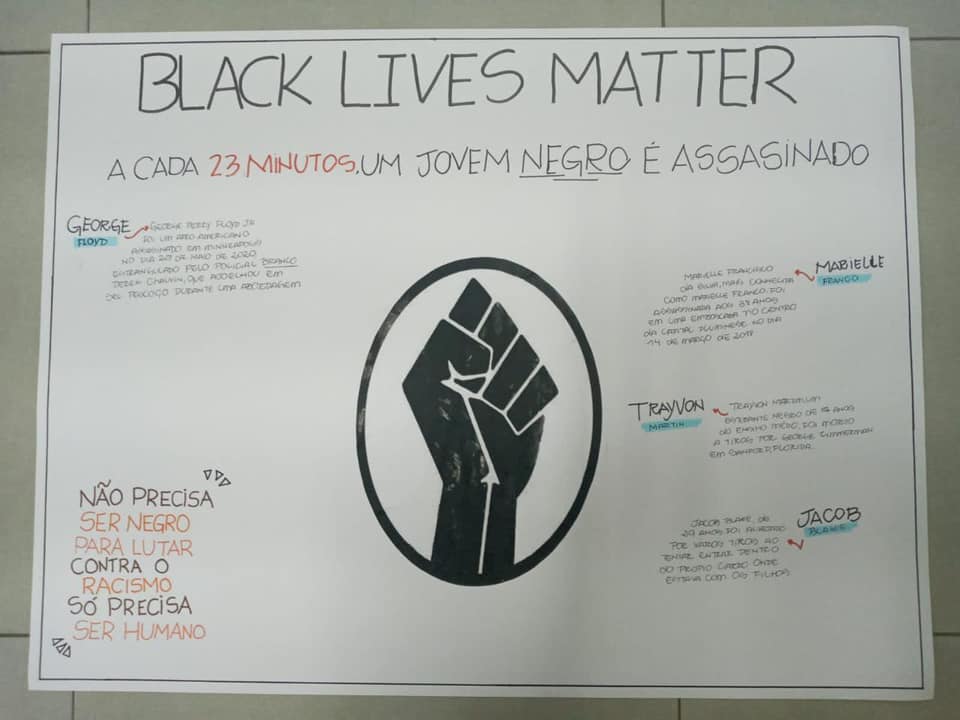 BLACK LIVES MATTER
A CADA 23 MINUTOS, UM JOVEM NEGRO É ASSASINADO
GEORGE
FLOYD
GEORGE PERRY FLOYD JR
FOI UM AFRO AMERICANO
ASSASINADO EM MINNEAPOLIS
NO DIA 25 DE MAIO DE 2020,
ESTRANGULADO PELO POLICIAL BRANCO
DEREK CHAUVIN, QUE AJOELHOU EM
SEU PESCOÇO DURANTE UMA ABORDAGEM
MARIELLE
FRANCO
MARIELLE FRANCISCO
DA SILVA, MAIS CONHECIDA
COMO MARIELLE FRANCO, FOI
ASSASSINADA AOS 38 ANOS
EM UMA EMBOSCADA NO CENTRO
DA CAPITAL FLUMINENSE NO DIA
14 DE MARÇO DE 2018
TRAYVON
MARTIN
TRAYVON MARTIN, UM
ESTUDANTE NEGRO DE 17 ANOS
DO ENSINO MÉDIO, FOI MORTO
A TIROS POR GEORGE ZIMMERMAN
EM SANFORD, FLORIDA.
JACOB
BLAKE
JACOB BLAKE, DE
29 ANOS, FOI ALVEJADO
POR VARIOS TIROS AO
TENTAR ENTRAR DENTRO
DO PROPIO CARRO ONDE
ESTAVA COM OS FILHOS
NÃO PRECISA
SER NEGRO
PARA LUTAR
CONTRA O
RACISMO
SÓ PRECISA
SER HUMANO